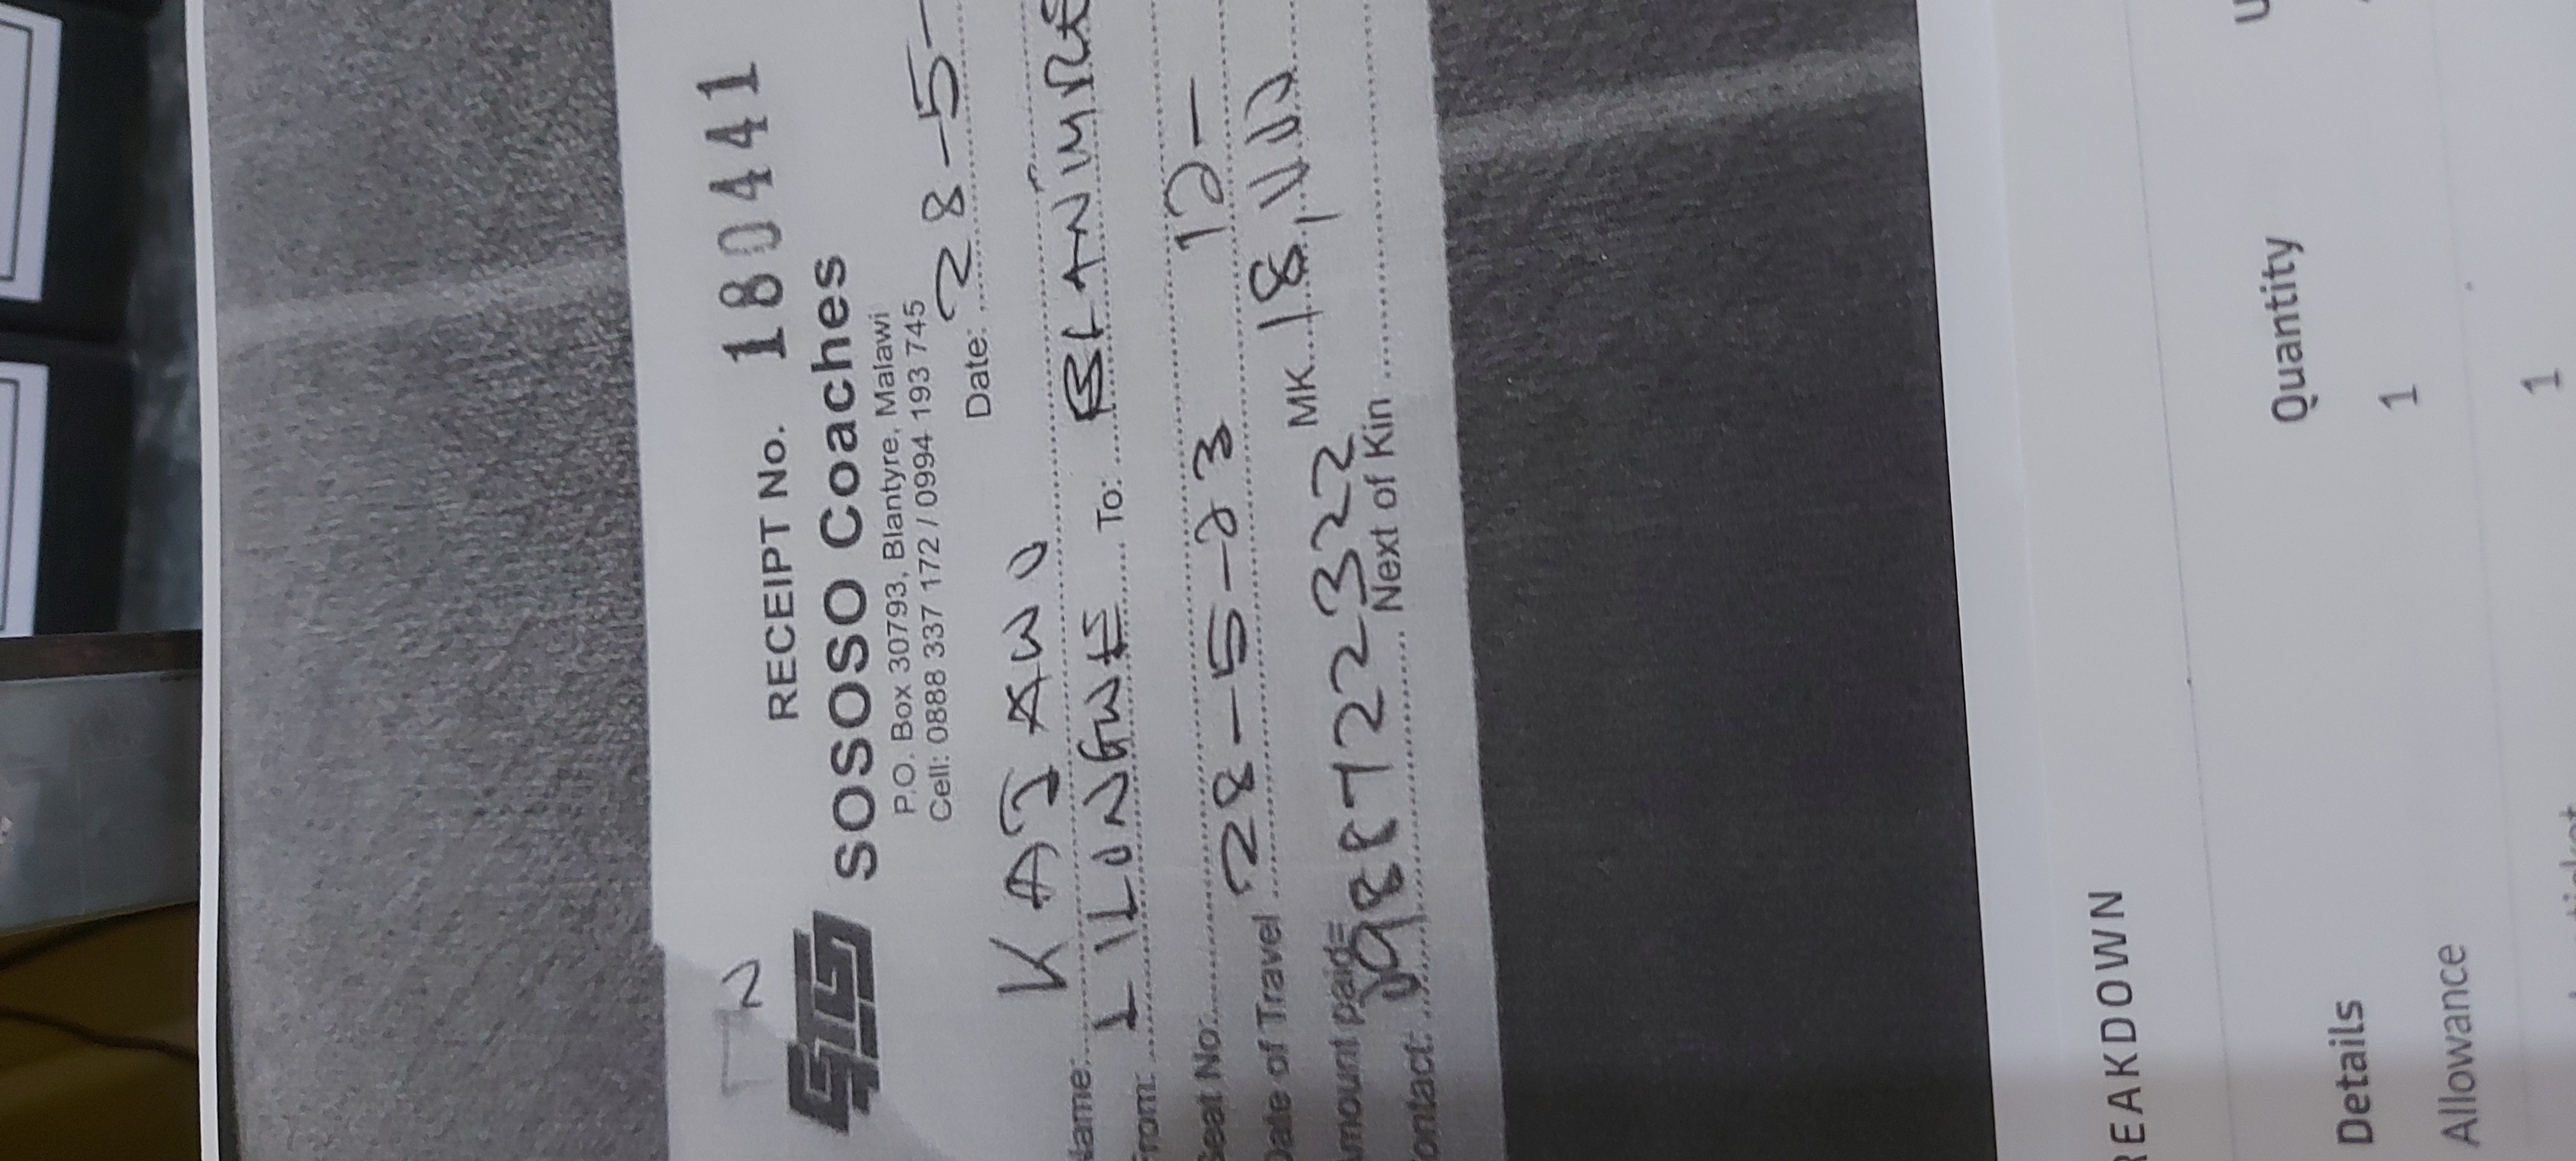 N
RECEIPT No. 180441
SOSOSO Coaches
P.O. Box 30793, Blantyre, Malawi
Cell: 0888 337 172 / 0994 193 745
Date: 28-5-
Name: KAJAWO
From: LILONGWE To: BLANTYRE
Seat No:
Date of Travel 28-5-23 12-
Amount paid= MK 18,000
Contact: 0988722322 Next of Kin
REAKDOWN
Details Quantity U
Allowance 1
ticket 1